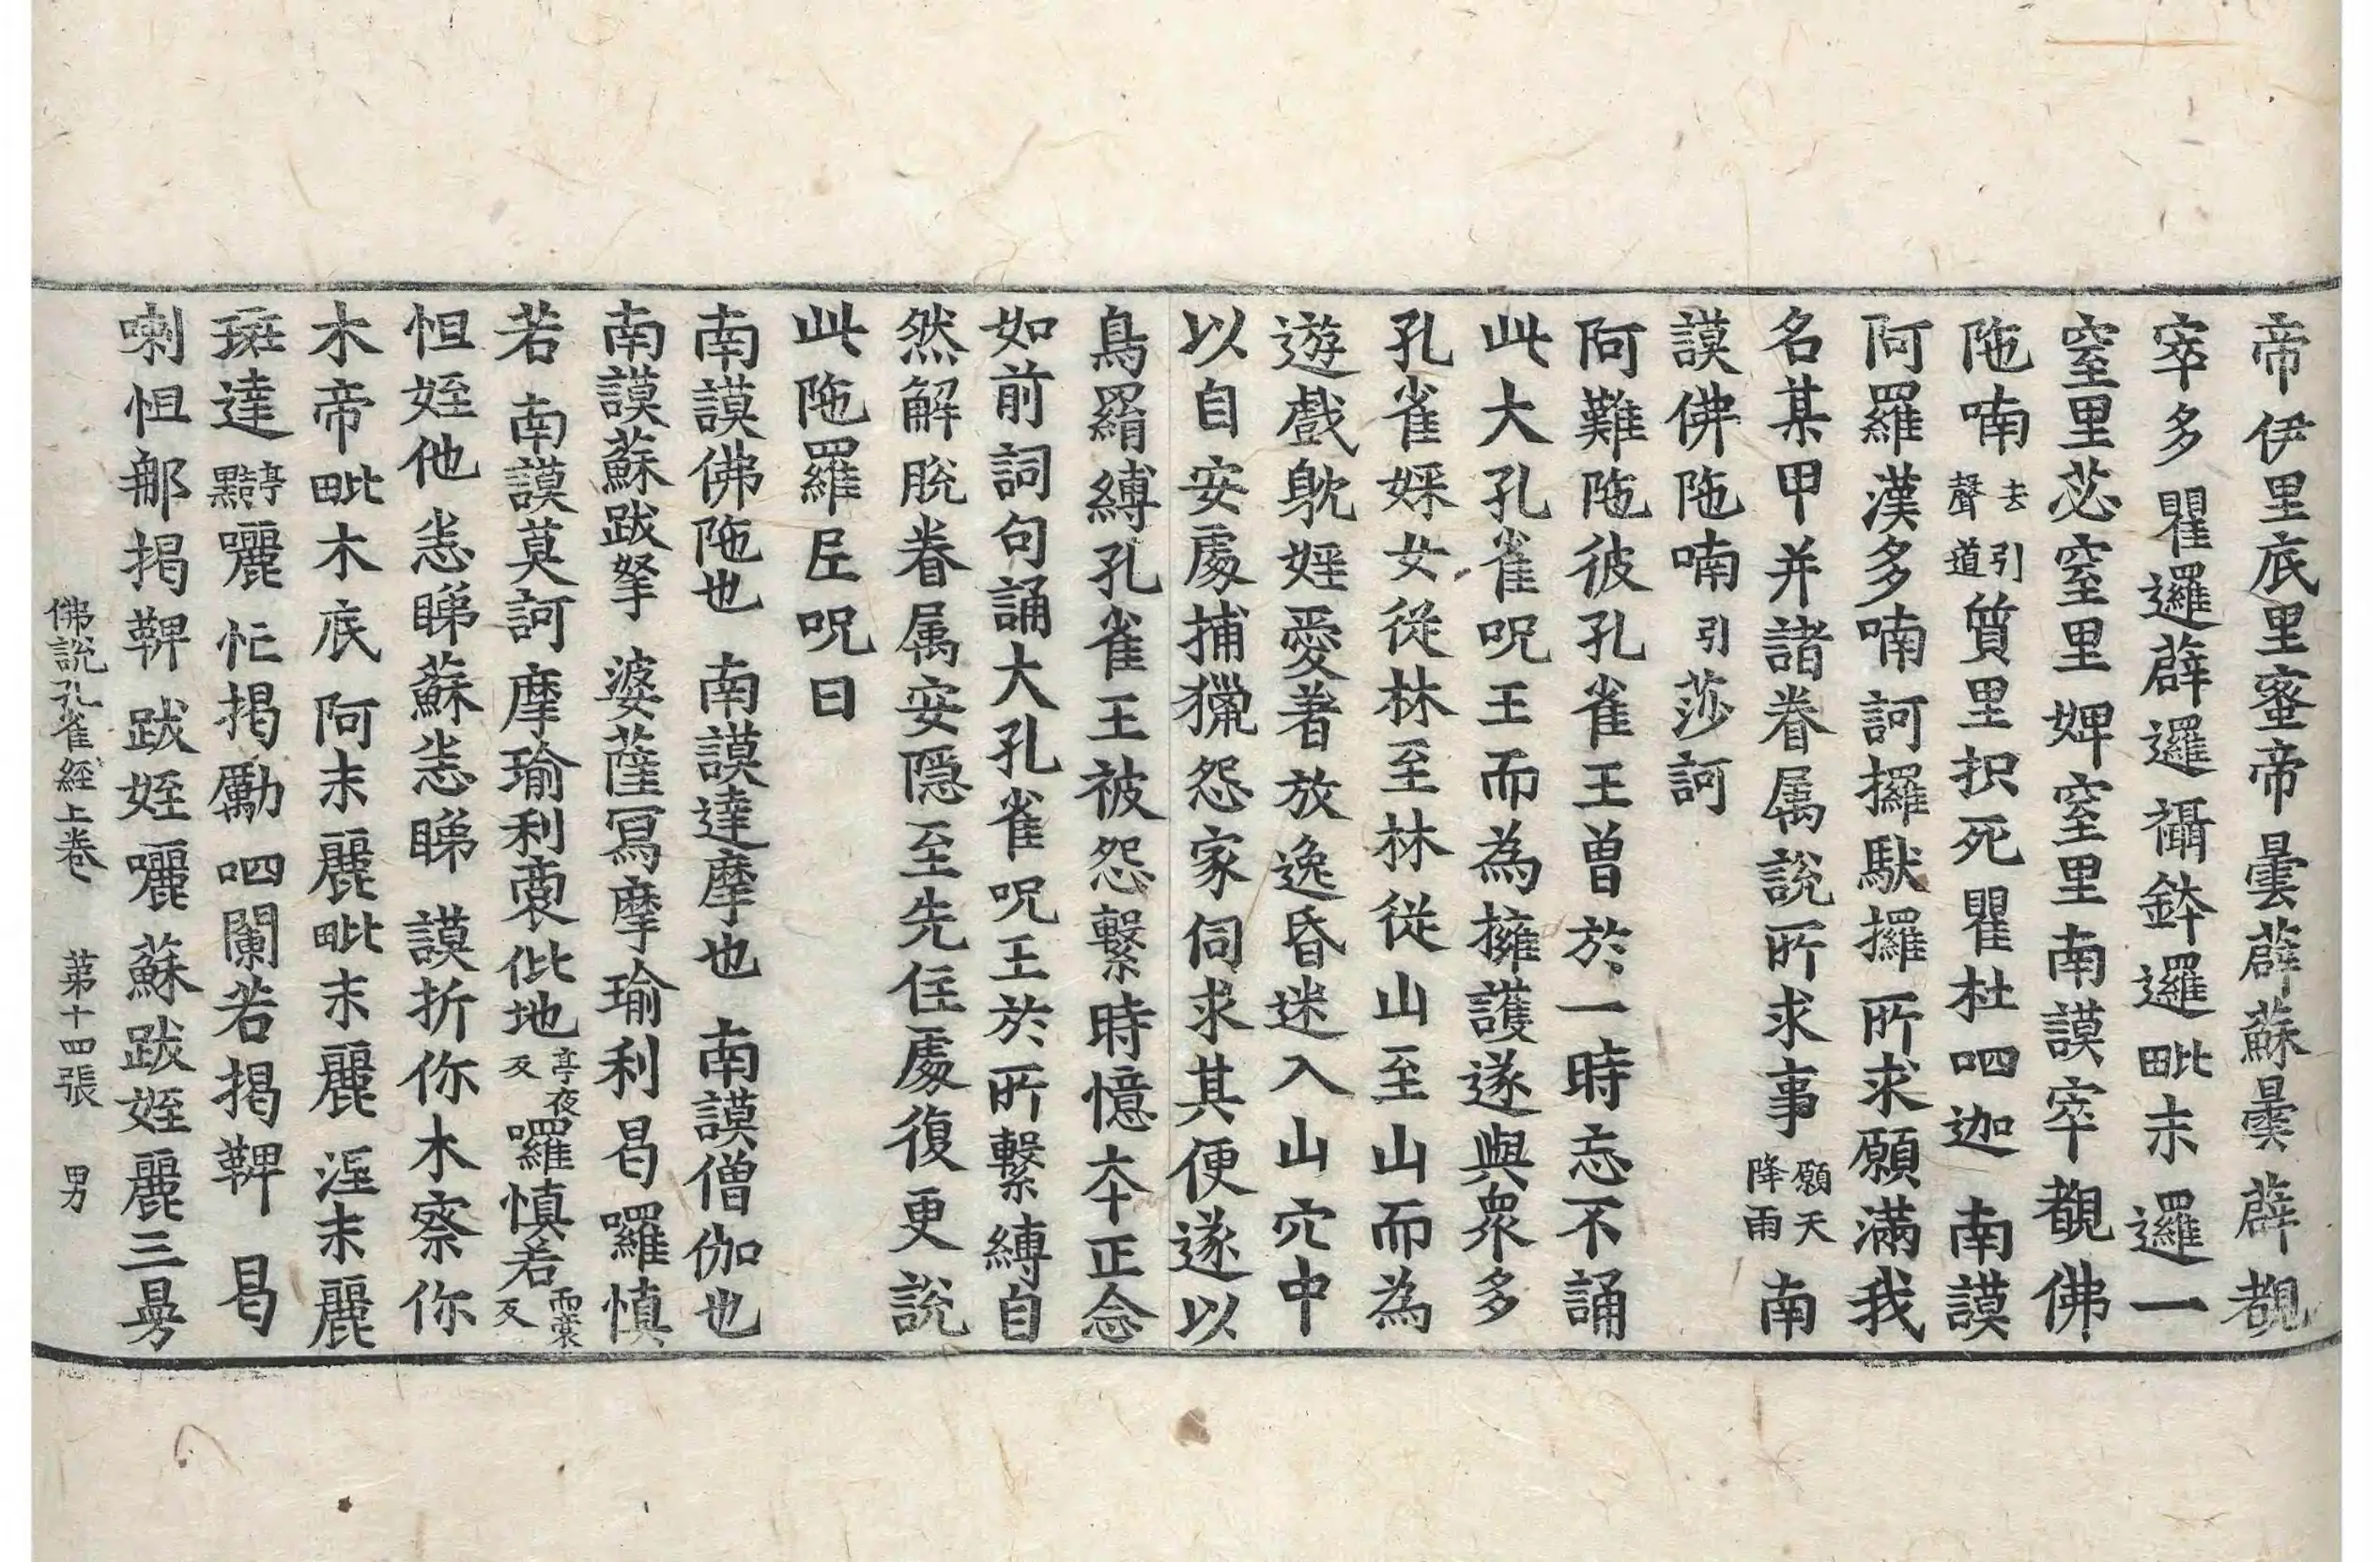 帝伊里底里蜜帝曇薜蘇曇薜覩
窣多瞿邏薜邏襵鉢邏毗末邏一
窒里苾窒里婢窒里南謨窣覩佛
陁喃去聲引道質里択死瞿杜呬迦南謨
阿羅漢多喃訶攞馱攞所求願滿我
名某甲并諸眷属說所求事願天降雨南
謨佛陁喃引莎訶
阿難陁彼孔雀王曽於一時忘不誦
此大孔雀呪王而為擁護遂與衆多
孔雀婇女從林至林從山至山而為
遊戲躭婬愛著放逸昏迷入山穴中
以自安處捕獵怨家伺求其便遂以
鳥羂縛孔雀王被怨繫時憶夲正念
如前詞句誦大孔雀呪王於所繫縛自
然解脫眷属安隱至先住處復更說
此陁羅𡰱呪曰
南謨佛陁也南謨達摩也南謨僧伽也
南謨蘇跋拏婆薩寫摩瑜利曷囉慎
若南謨莫訶摩瑜利裔佌地亭夜反囉慎若而裳反
怛姪他恙睇蘇恙睇謨折你木察你
木帝毗木底阿末麗毗末麗涅末麗
斑達亭黠囇忙揭勵呬闌若揭鞞曷
喇怛那揭鞞跋姪囇蘇跋姪麗三曼
佛說孔雀經上卷 第十四張 男